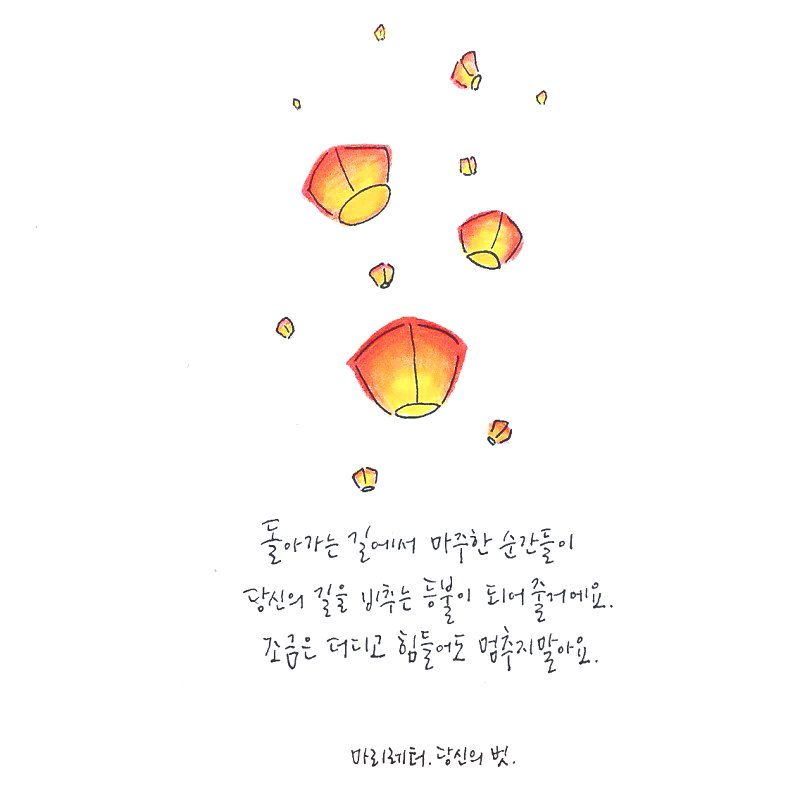 돌아가는 길에서 마주한 순간들이
당신의 길을 비추는 등불이 되어줄거에요.
조금은 더디고 힘들어도 멈추지말아요.
마리레터. 당신의 벗.